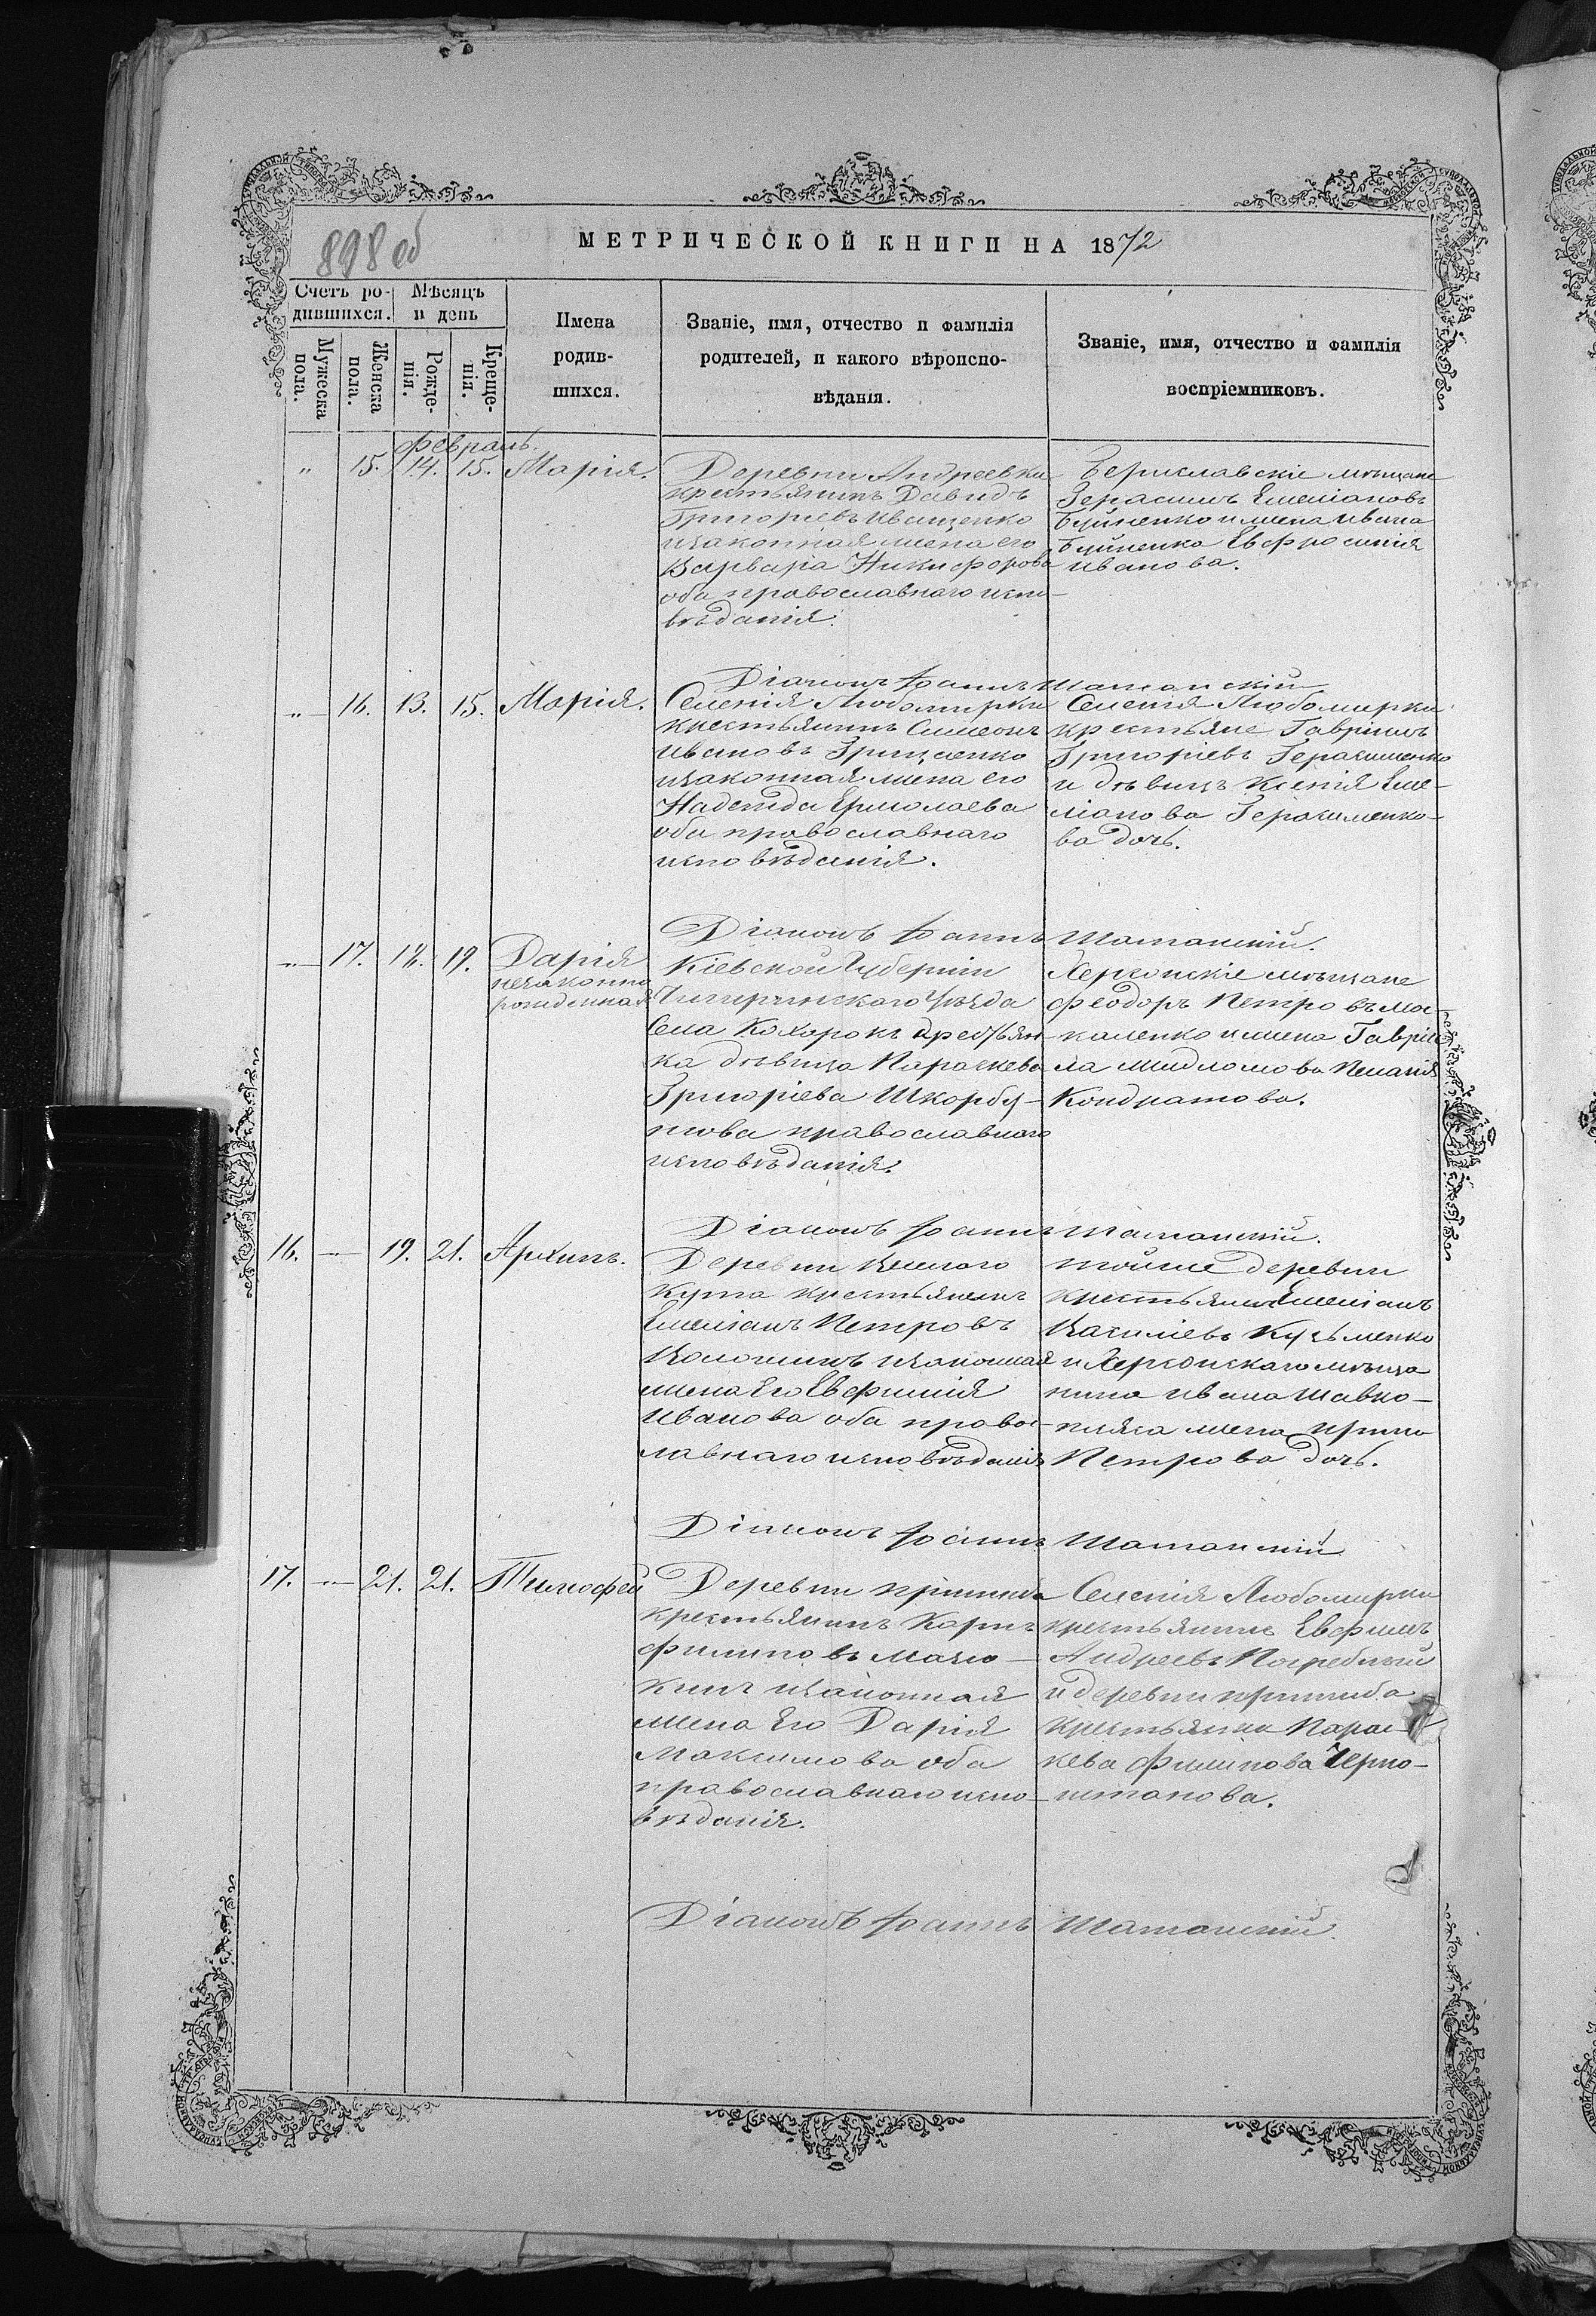 898 об
МЕТРИЧЕСКОЙ КНИГИ НА 1872
Счетъ ро-
дившихся.
Мѣсяцъ
и день
Мужеска
пола.
Женска
пола.
Рожде-
нія.
Креще-
нія.
Имена
родив-
шихся.
Званіе, имя, отчество и фамилія
родителей, и какого вѣроиспо-
вѣданія.
Званіе, имя, отчество и фамилія
воспріемниковъ.
Февраль.
" 15. 14. 15. Марія.
Деревни Андреевки
крестьянинъ Давидъ
Григорьевъ Иващенко
изаконная жена его
Варвара Никифорова
оба православнаго испо-
вѣданія.
Бериславскіе мѣщане
Герасимъ Емеліановъ
Буйненко и жена Ивана
Буйненка Евфросинія
Иванова.
Діаконъ Іоаннъ Шатанскій
" 16. 13. 15. Марія.
Селенія Любомирки
крестьянинъ Симеонъ
Ивановъ Грищенко
изаконная жена его
Надежда Ермолаева
оба православнаго
исповѣданія.
Селенія Любомирки
крестьяне Гавріилъ
Григоріевъ Герасименко
и дѣвица Ксенія Еме-
ліанова Герасименко-
ва дочь.
Діаконъ Іоаннъ Шатанскій.
" 17. 18. 19. Дарія
незаконно
рожденная
Кіевской Губерніи
Чигиринскаго Уѣзда
Села Кохорокъ крестьян-
ка дѣвица Параскева
Григоріева Шкорбу-
това православнаго
исповѣданія.
Херсонскіе мѣщане
Феодоръ Петровъ Мос-
каленко и жена Гавріи-
ла Пелагія
Кондратова.
Діаконъ Іоаннъ Шатанскій.
16. " 19. 21. Архипъ.
Деревни
Кута крестьянинъ
Емеліанъ Петровъ
Волошинъ изаконная
жена Его Евфимія
Иванова оба правос-
лавнаго исповѣданія
тойже деревни
крестьянинъ Емеліанъ
Василіевъ Кузьменко
и Херсонскаго мѣща
нина Ивана Шавко-
пляса жена Ирина
Петрова дочь.
Діаконъ Іоаннъ Шатанскій
17. " 21. 21. Тимофей
Деревни Пришиба
крестьянинъ Карпъ
Филиповъ
кинъ изаконная
жена Его Дарія
Максимова оба
православнаго испо-
вѣданія.
Селенія Любомирки
крестьянинъ Евфимъ
Андреевъ Погребный
и деревни Пришиба
крестьянка Парас-
кева Филипова Черно-
штанова.
Діаконъ Іоаннъ Шатанскій.